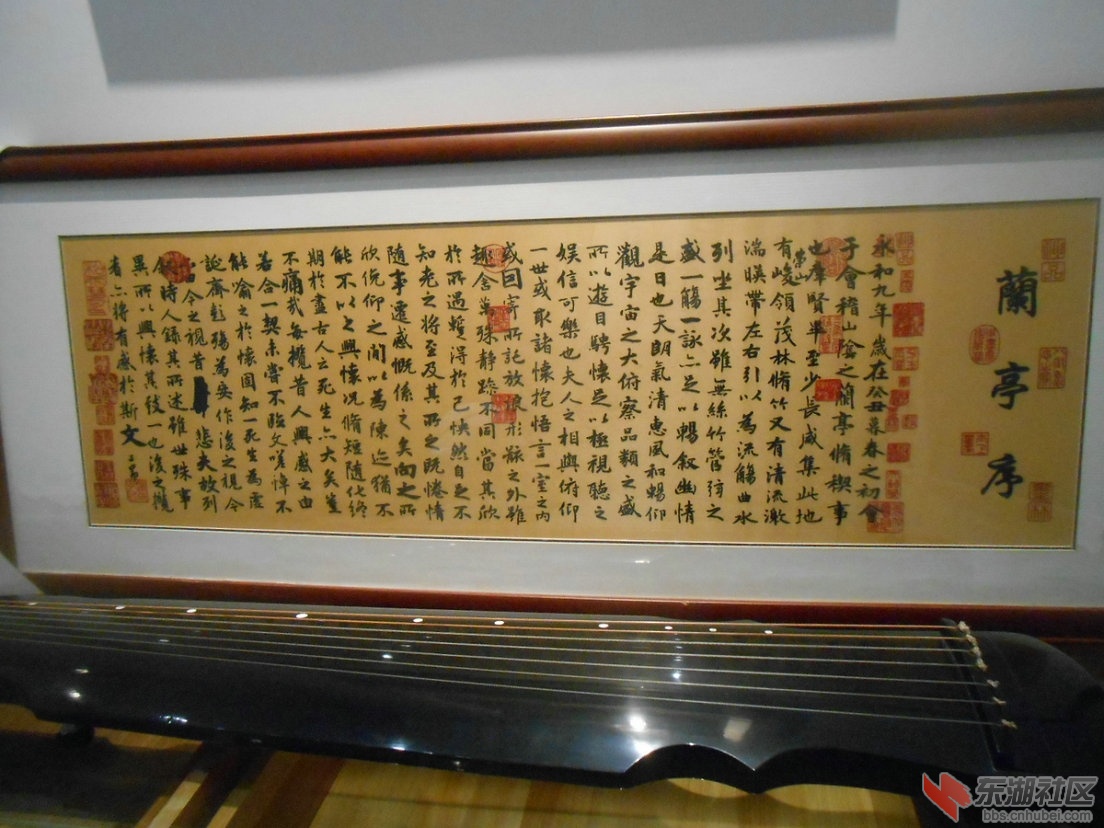 蘭亭序
永和九年歲在癸丑暮春之初會
于會稽山陰之蘭亭脩稧事
也羣賢畢至少長咸集此地
有崇山峻領茂林脩竹又有清流激
湍暎帶左右引以為流觴曲水
列坐其次雖無絲竹管弦之
盛一觴一詠亦足以暢叙幽情
是日也天朗氣清惠風和暢仰
觀宇宙之大俯察品類之盛
所以遊目騁懷足以極視聽之
娛信可樂也夫人之相與俯仰
一世或取諸懷抱悟言一室之內
或因寄所託放浪形骸之外雖
趣舍萬殊静躁不同當其欣
於所遇蹔得於己怏然自足不
知老之將至及其所之既惓情
隨事遷感慨係之矣向之所
欣俛仰之閒以為陳迹猶不
能不以之興懷況脩短隨化終
期於盡古人云死生亦大矣豈
不痛哉每攬昔人興感之由
若合一契未嘗不臨文嗟悼不
能喻之於懷固知一死生為虛
誕齊彭殤為妄作後之視今
今之視昔悲夫故列
時人錄其所述雖世殊事
異所以興懷其致一也後之攬
者亦將有感於斯文
东湖社区
bbs.cnhubei.com